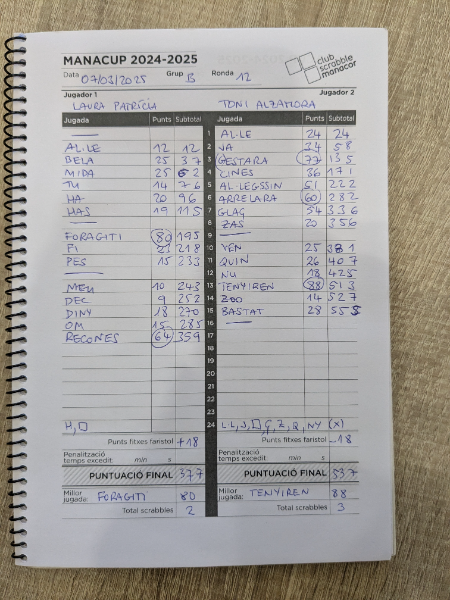 MANACUP 2024-2025
Data 07/03/2025 Grup B Ronda 12
club scrabble manacor
Jugador 1 Jugador 2
LAURA PATRÍCIA TONI ALZAMORA
Jugada Punts Subtotal Jugada Punts Subtotal
— 1 AL·LE 24 24
AL·LE 12 12 2 VA 34 58
BELA 25 37 3 GESTARA 77 135
MIDA 25 62 4 CINES 36 171
TU 14 76 5 AL·LEGSSIN 51 222
HA 20 96 6 ARRELARA 60 282
HAS 19 115 7 GLAÇ 54 336
— 8 ZAS 20 356
FORAGITI 80 195 9 —
FI 23 218 10 XEN 25 381
PES 15 233 11 QUIN 26 407
— 12 NU 18 425
MEU 10 243 13 TENYIREN 88 513
DEC 9 252 14 ZOO 14 527
DINY 18 270 15 BASTAT 28 555
OM 15 285 16 —
REGONES 64 359 17
18
19
20
21
22
23
H, □ 24 L·L, J, □, Ç, Z, Q, NY (X)
Punts fitxes faristol +18 Punts fitxes faristol -18
Penalització temps excedit: min s Penalització temps excedit: min s
PUNTUACIÓ FINAL 377 PUNTUACIÓ FINAL 537
Millor jugada: FORAGITI 80 Millor jugada: TENYIREN 88
Total scrabbles 2 Total scrabbles 3